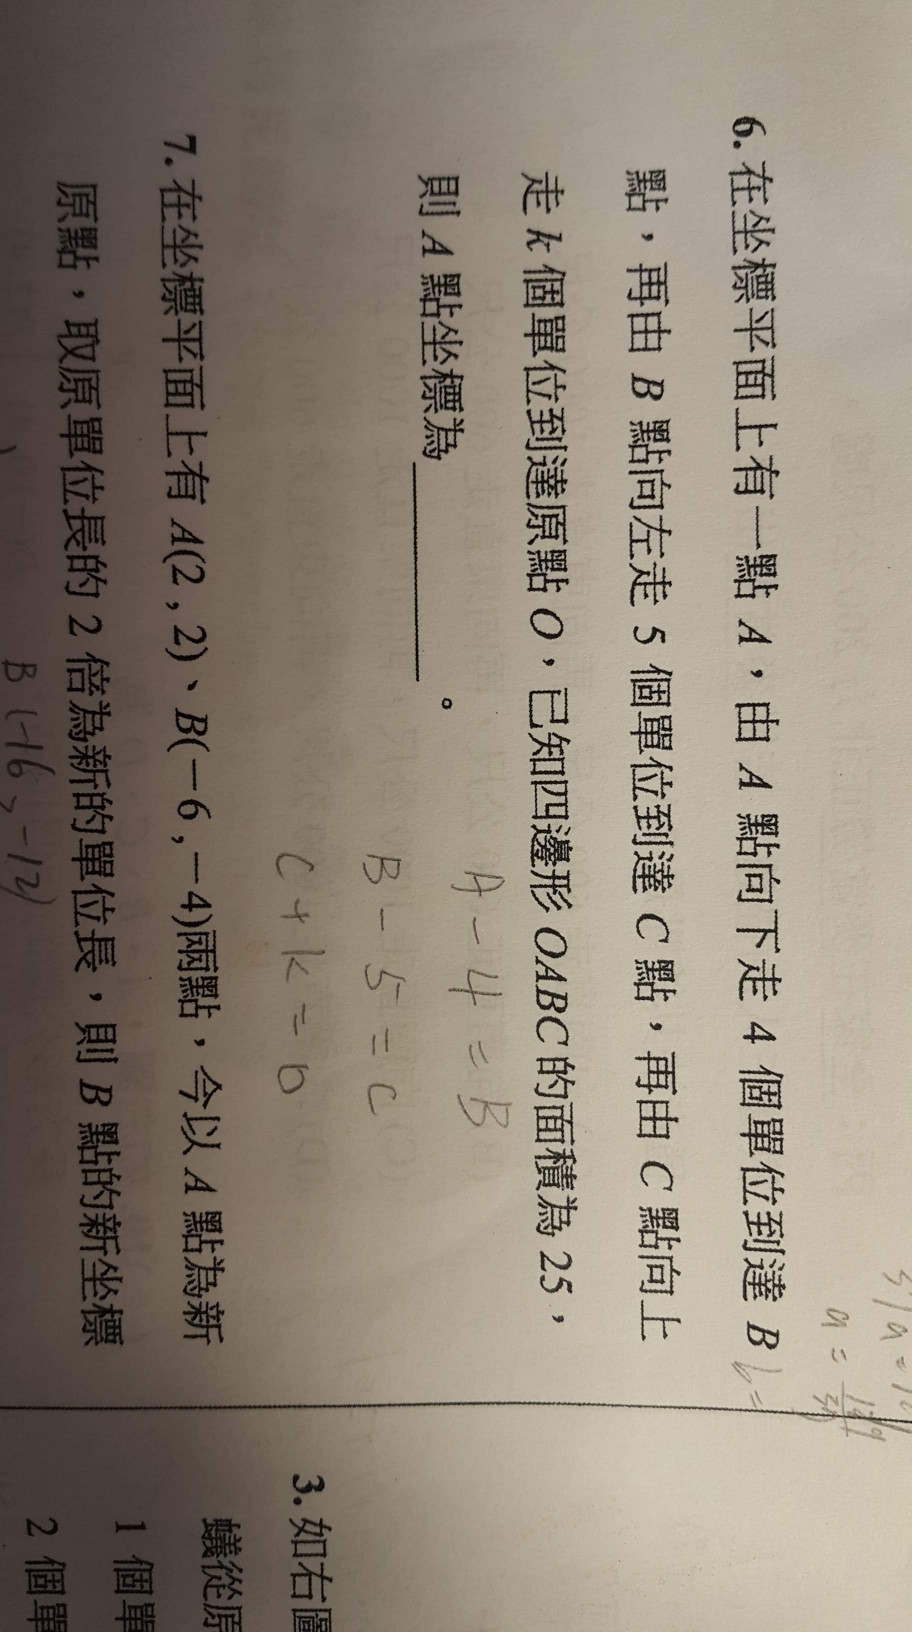 6. 在坐標平面上有一點 A，由 A 點向下走 4 個單位到達 B
點，再由 B 點向左走 5 個單位到達 C 點，再由 C 點向上
走 k 個單位到達原點 O，已知四邊形 OABC 的面積為 25，
則 A 點坐標為＿＿＿＿。
A - 4 = B
B - 5 = C
C + k = 0
7. 在坐標平面上有 A(2 , 2)、B(－6 , －4)兩點，今以 A 點為新
原點，取原單位長的 2 倍為新的單位長，則 B 點的新坐標
B (-16, -12)
b =
3. 如右圖
蟻從原
1 個單
2 個單